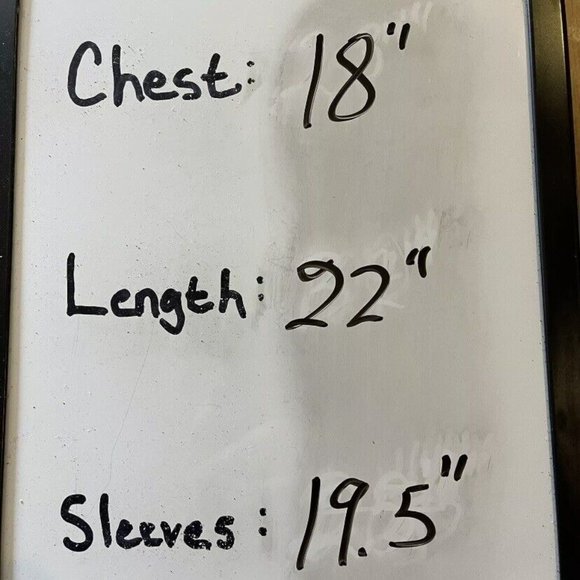 Chest: 18"
Length: 22"
Sleeves: 19.5"